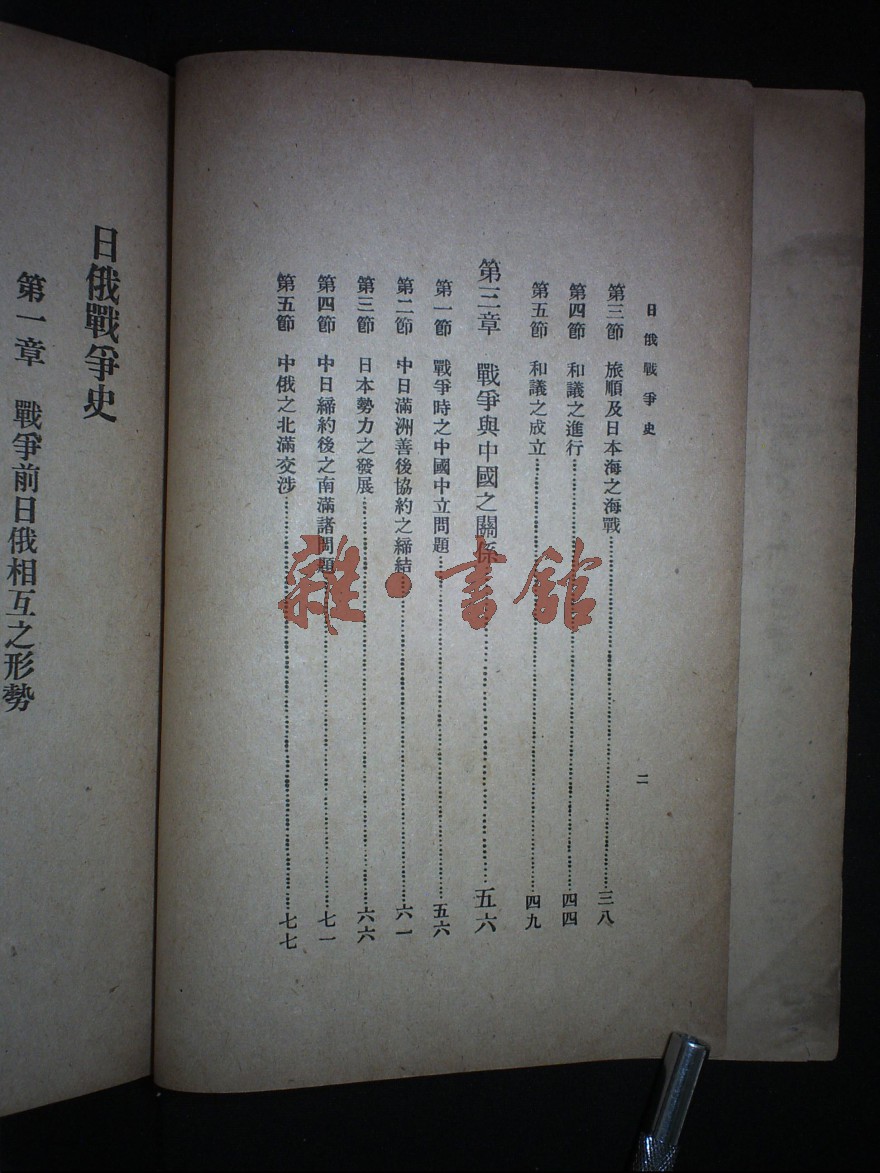 日俄戰爭史
二
第三節 旅順及日本海之海戰……三八
第四節 和議之進行……四四
第五節 和議之成立……四九
第三章 戰爭與中國之關係……五六
第一節 戰爭時之中國中立問題……五六
第二節 中日滿洲善後協約之締結……六一
第三節 日本勢力之發展……六六
第四節 中日締約後之南滿諸問題……七一
第五節 中俄之北滿交涉……七七
日俄戰爭史
第一章 戰爭前日俄相互之形勢
雜·書館